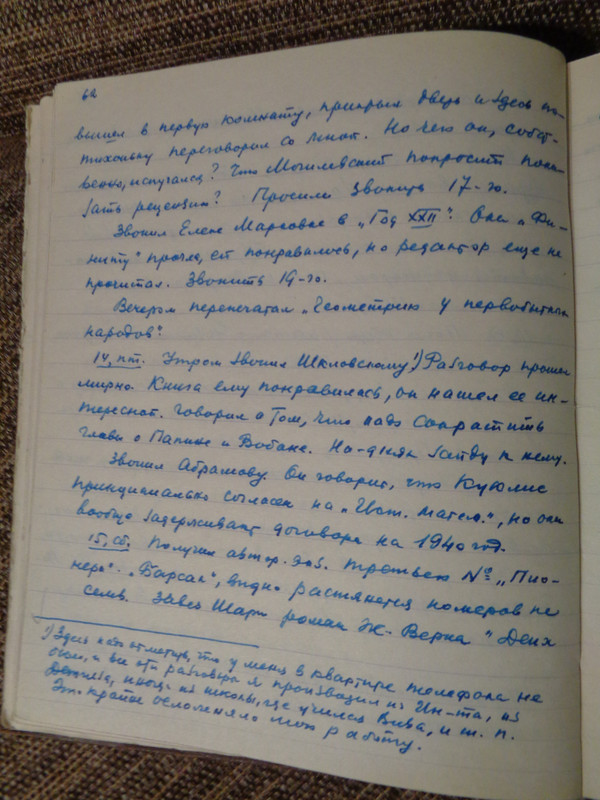 62
вышел в первую комнату, прикрыл дверь и здесь по-
тихоньку переговорил со мной. Но чего он, собст-
венно, испугался? Что Могилевский попросит пока-
зать рецензию? Просили звонить 17-го.
Звонил Елене Марковне в „Год XXII". Она „Фи-
ниту" прочла, ей понравилось, но редактор еще не
прочитал. Звонить 19-го.
Вечером перепечатал „Геометрию у первобытных
народов".
14, пт. Утром звонил Шкловскому¹) Разговор прошел
мирно. Книга ему понравилась, он нашел ее ин-
тересной. Говорил о том, что надо сократить
главы о Папине и Вобане. На-днях зайду к нему.
Звонил Абрамову. Он говорит, что Куклис
принципиально согласен на „Ист. матем.", но они
вообще задерживают договора на 1940 год.
15, сб. Получил автор. экз. третьего № „Пио-
нера". „Барсак", видно растянется номеров на
семь. Завел Шарп роман Ж. Верна "Двих
¹) Здесь надо отметить, что у меня в квартире телефона не
было, и все эти разговоры я производил из Ин-та, из
Детгиза, иногда из школы, где училась Вива, и т. п.
Эт. крайне осложняло мою работу.